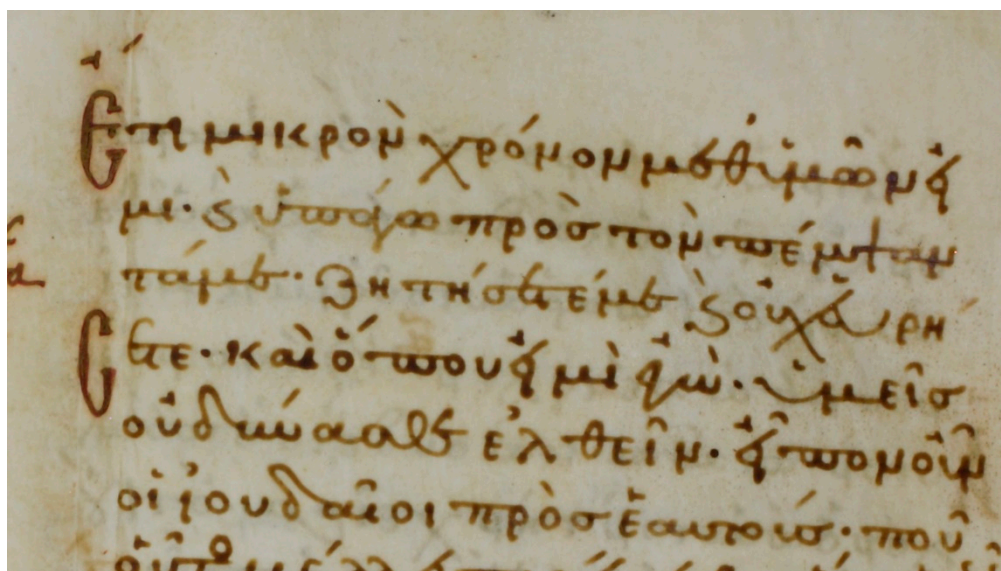 Ἔτι μικρὸν χρόνον μεθ ἡμῶν εἰ
μι· καὶ ὑπάγω πρὸς τὸν πέμψαν
τά με· ζητήσετέ με καὶ οὐχ εὑρή
σετε· καὶ ὅπου εἰμὶ ἐγὼ· ὑμεῖς
οὐ δύνασθε ἐλθεῖν· εἶπον οὖν
οἱ ἰουδαῖοι πρὸς ἑαυτοίς· ποῦ